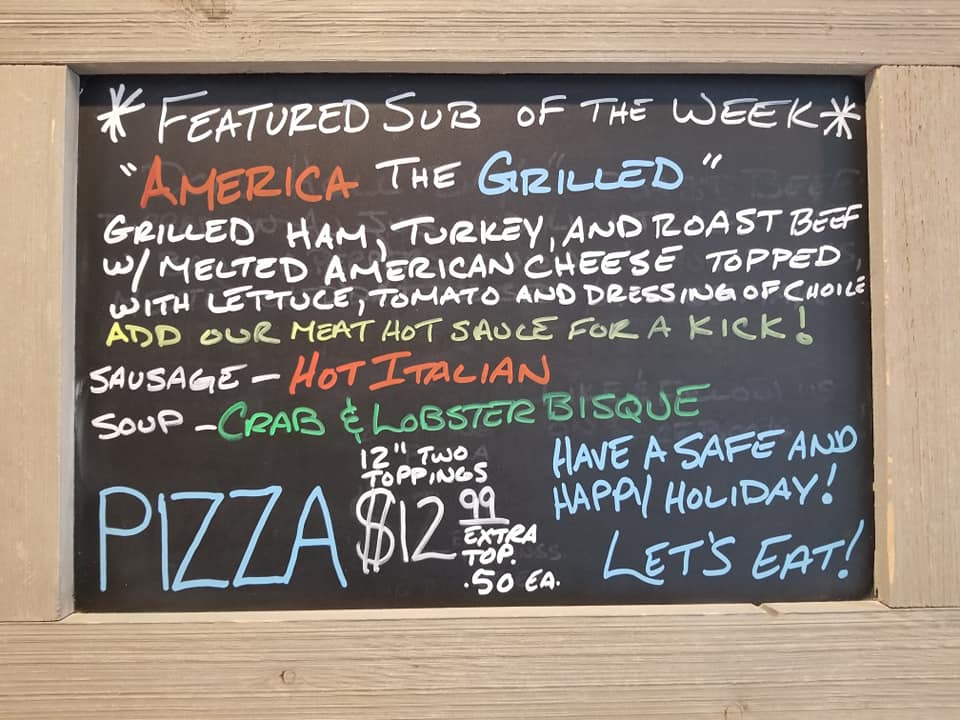 * FEATURED SUB OF THE WEEK *
"AMERICA THE GRILLED"
GRILLED HAM, TURKEY, AND ROAST BEEF
W/ MELTED AMERICAN CHEESE TOPPED
WITH LETTUCE, TOMATO AND DRESSING OF CHOICE
ADD OUR MEAT HOT SAUCE FOR A KICK!
SAUSAGE - HOT ITALIAN
SOUP - CRAB & LOBSTER BISQUE
PIZZA
12" TWO
TOPPINGS
$12.99
EXTRA
TOP.
.50 EA.
HAVE A SAFE AND
HAPPY HOLIDAY!
LET'S EAT!